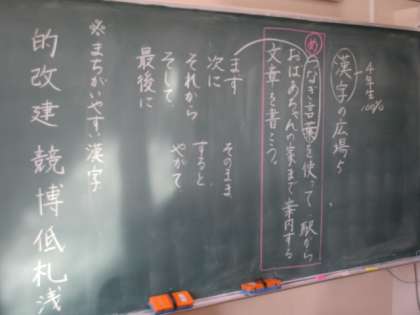 漢字の広場5
4年生
100%
め つなぎ言葉を使って、駅から
おばあちゃんの家まで案内する
文章を書こう。
まず
次に
それから
そして
最後に
そのまま
すると
やがて
※まちがいやすい漢字
的改建競博低札浅